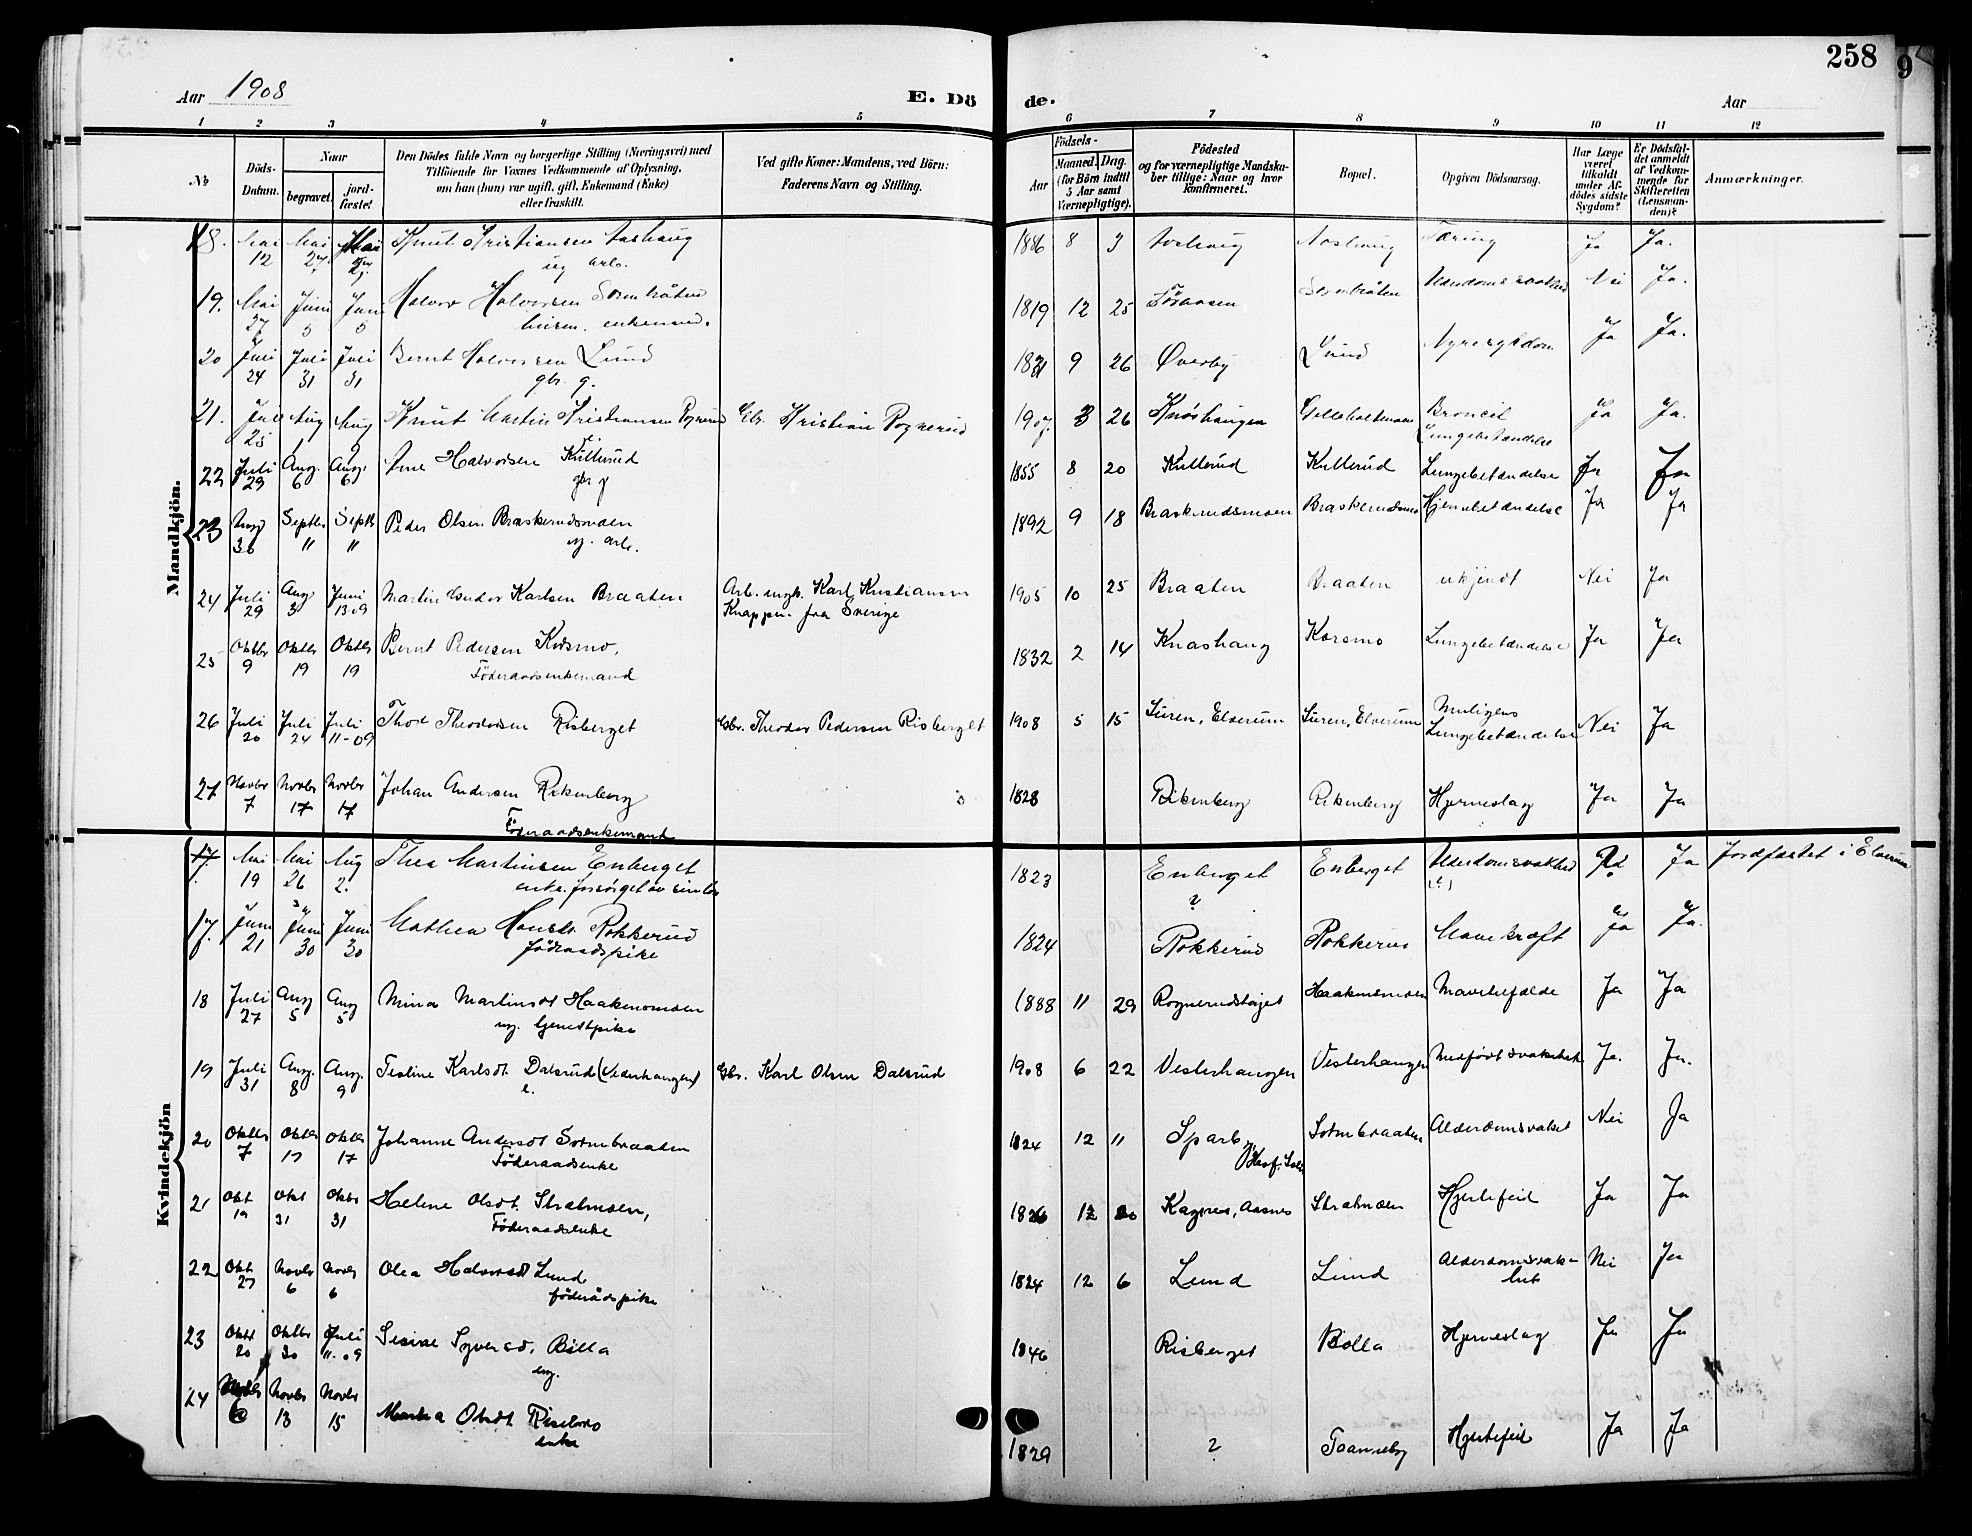 258
9
Aar 1908
E. Dö
de.
Aar
1 2 3 4 5 6 7 8 9 10 11 12
No
Döds-Datum.
Naar
begravet.
jord-fæstet.
Den Dödes fulde Navn og borgerlige Stilling (Næringsvei) med Tilföiende for Voxnes Vedkommende af Oplysning, om han (hun) var ugift, gift, Enkemand (Enke) eller fraskilt.
Ved gifte Koner: Mandens, ved Börn: Faderens Navn og Stilling.
Födsels-
Aar
Maaned. Dag.
(for Börn indtil 5 Aar samt Værnepligtige).
Födested og for værnepligtige Mandskaber tillige: Naar og hvor konfirmeret.
Bopæl.
Opgiven Dödsaarsag.
Har Læge været tilkaldt under Afdödes sidste Sygdom?
Er Dödsfaldet anmeldt af Vedkommende for Skifteretten (Lensmanden)?
Anmærkninger.
Mandkjön.
18. Mai 12 Mai 27 Mai 27 Knut Kristiansen Aashaug ug arb. 1886 8 3 Aashaug Aashaug Tæring Ja Ja.
19. Mai 27 Juni 5 Juni 5 Halvor Halvorsen Sormbråten husm. enkemand. 1819 12 25 Sormbråten Alderdomssvakhed Nei Ja.
20 Juli 24 Juli 31 Juli 31 Bernt Halvorsen Lund gbr. g. 9 26 Øverby Lund Nyresygdom Ja Ja.
21. Juli 25 Aug 1 Aug 9 Knut Martin Kristiansen Rognerud Gbr. Kristian Rognerud 1907 3 26 Knashaugen Broncit Lungebetændelse Ja Ja.
22 Juli 29 Aug. 6 Aug. 6 Arne Halvorsen Kulterud gbr g 1855 8 20 Kulterud Kulterud Lungebetændelse Ja Ja
23 Aug 30 Septbr 11 Septb 11 Peder Olsen Braskerudsmoen ug. arb. 1892 9 18 Braskerudsmoen Braskerudsmo Hjernebetændelse Ja Ja
24 Juli 29 Aug 3 Juni 13 09 Martin Karlsen Braaten Arb. ungk. Karl Kristiansen Knappen. fra Sverige 1905 10 25 Braaten Braaten ukjendt Nei Ja
25 Oktbr 9 Oktbr 19 Oktbr 19 Bernt Pedersen Korsmo, Föderaadsenkemand 1832 2 14 Knashaug Korsmo Lungebetændelse Ja Ja
26 Juli 20 Juli 24 Juli 11-09 Thor Theodorsen Risberget Gbr. Theodor Pedersen Risberget 1908 5 15 Suren, Elverum Suren, Elverum Muligens Lungebetændelse Nei Ja
27 Novbr 7 Novbr 17 Novbr 17 Johan Andersen Rikenberg Föderaadsenkemand 1828 Rikenberg Rikenberg Hjerneslag Ja Ja
Kvindekjön
17. Mai 19 Mai 26 Aug 2. Thea Martinsen Enberget enke. forsørget av sin 1823 Enberget ? Enberget Alderdomsvakhed (?) Ja Jordfæstet i Elverum
17. Juni 21 Juni 30 Juni 30 Mathea Hansdt. Rokkerud föderaadspike 1824 Rokkerud Rokkerud Mavekræft Ja Ja.
18 Juli 27 Aug 5 Aug 5 Mina Martinsdt Haakensmoen ug. tjenestpike 1888 11 29 Haakensmoen Ja Ja
19 Juli 31 Aug. 8 Aug. 9 Karlsdt. Dalsrud (Vesterhaugen) Gbr. Karl Olsen Dalsrud 1908 6 22 Vesterhaugen Vesterhaugen Medfødt svakhet Ja. Ja.
20 Oktbr 7 Oktbr 17 Oktbr 17 Johanne Andersdt Sormbraaten Föderaadsenke 1824 12 11 Sparby Sormbraaten Alderdomsvakhet Nei Ja
21 Okt 19 Okt 31 Okbr 31 Helene Olsdt. Stratmoen, Föderaadsenke 1826 12 20 Kagnes, Aasnes Stratmoen Hjertefeil Ja Ja
22 Okt 27 Novbr 6 Novbr 6 Olea Halvorsdt Lund föderådspike 1824 12 6 Lund Lund Alderdomsvak-het Nei Ja
23 Oktbr 20 Oktbr 30 Juli 11-09 Syversd. Bolla ug. 1846 Risberget Bolla Hjerneslag Ja Ja
24 Novbr 6 Novbr 13 Novbr 15 Marthea Olsdt Risebro enke 1829 ? Taanneby Hjertefeil Ja Ja